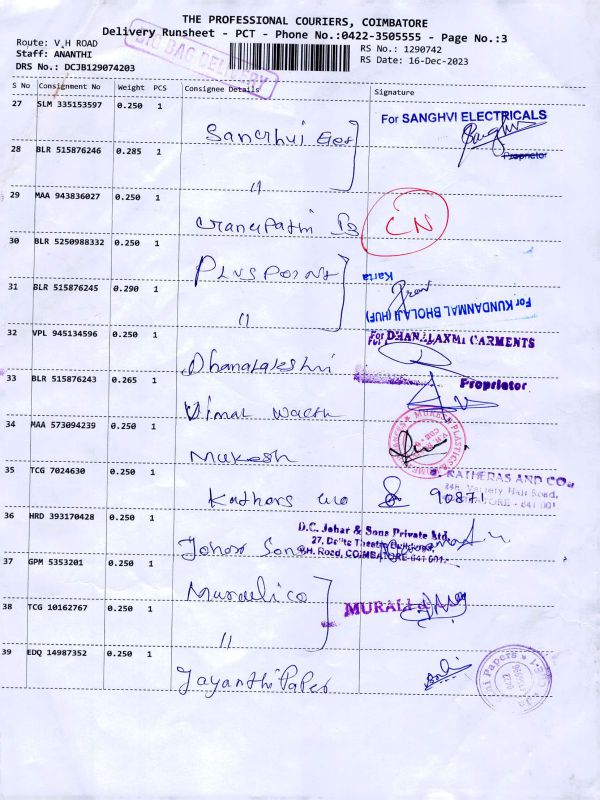 THE PROFESSIONAL COURIERS, COIMBATORE
Delivery Runsheet - PCT - Phone No.:0422-3505555 - Page No.:3
Route: V,H ROAD
Staff: ANANTHI
DRS No.: DCJB129074203
BIG BAG DELIVERY
RS No.: 1290742
RS Date: 16-Dec-2023
S No Consignment No Weight PCS Consignee Details Signature
27 SLM 335153597 0.250 1
For SANGHVI ELECTRICALS
Proprietor
28 BLR 515876246 0.285 1
"
29 MAA 943836027 0.250 1
CN
30 BLR 5250988332 0.250 1
Plus Point
Karta
31 BLR 515876245 0.290 1
"
For KUNDANMAL BHOLAJI (HUF)
32 VPL 945134596 0.250 1
For DHANALAXMI GARMENTS
Dhanalakshmi
33 BLR 515876243 0.265 1
Proprietor
Vimal Watch
34 MAA 573094239 0.250 1
Mukesh
35 TCG 7024630 0.250 1
KATHERAS AND CO.,
Kathers &co 90871
36 HRD 393170428 0.250 1
D.C. Johar & Sons Private Ltd.
27, Delite Theatre Building,
V.H. Road, COIMBATORE-641 001.
Johar Sons
37 GPM 5353201 0.250 1
Murali co
38 TCG 10162767 0.250 1
"
MURALI &
39 EDQ 14987352 0.250 1
Jayanthi Paper